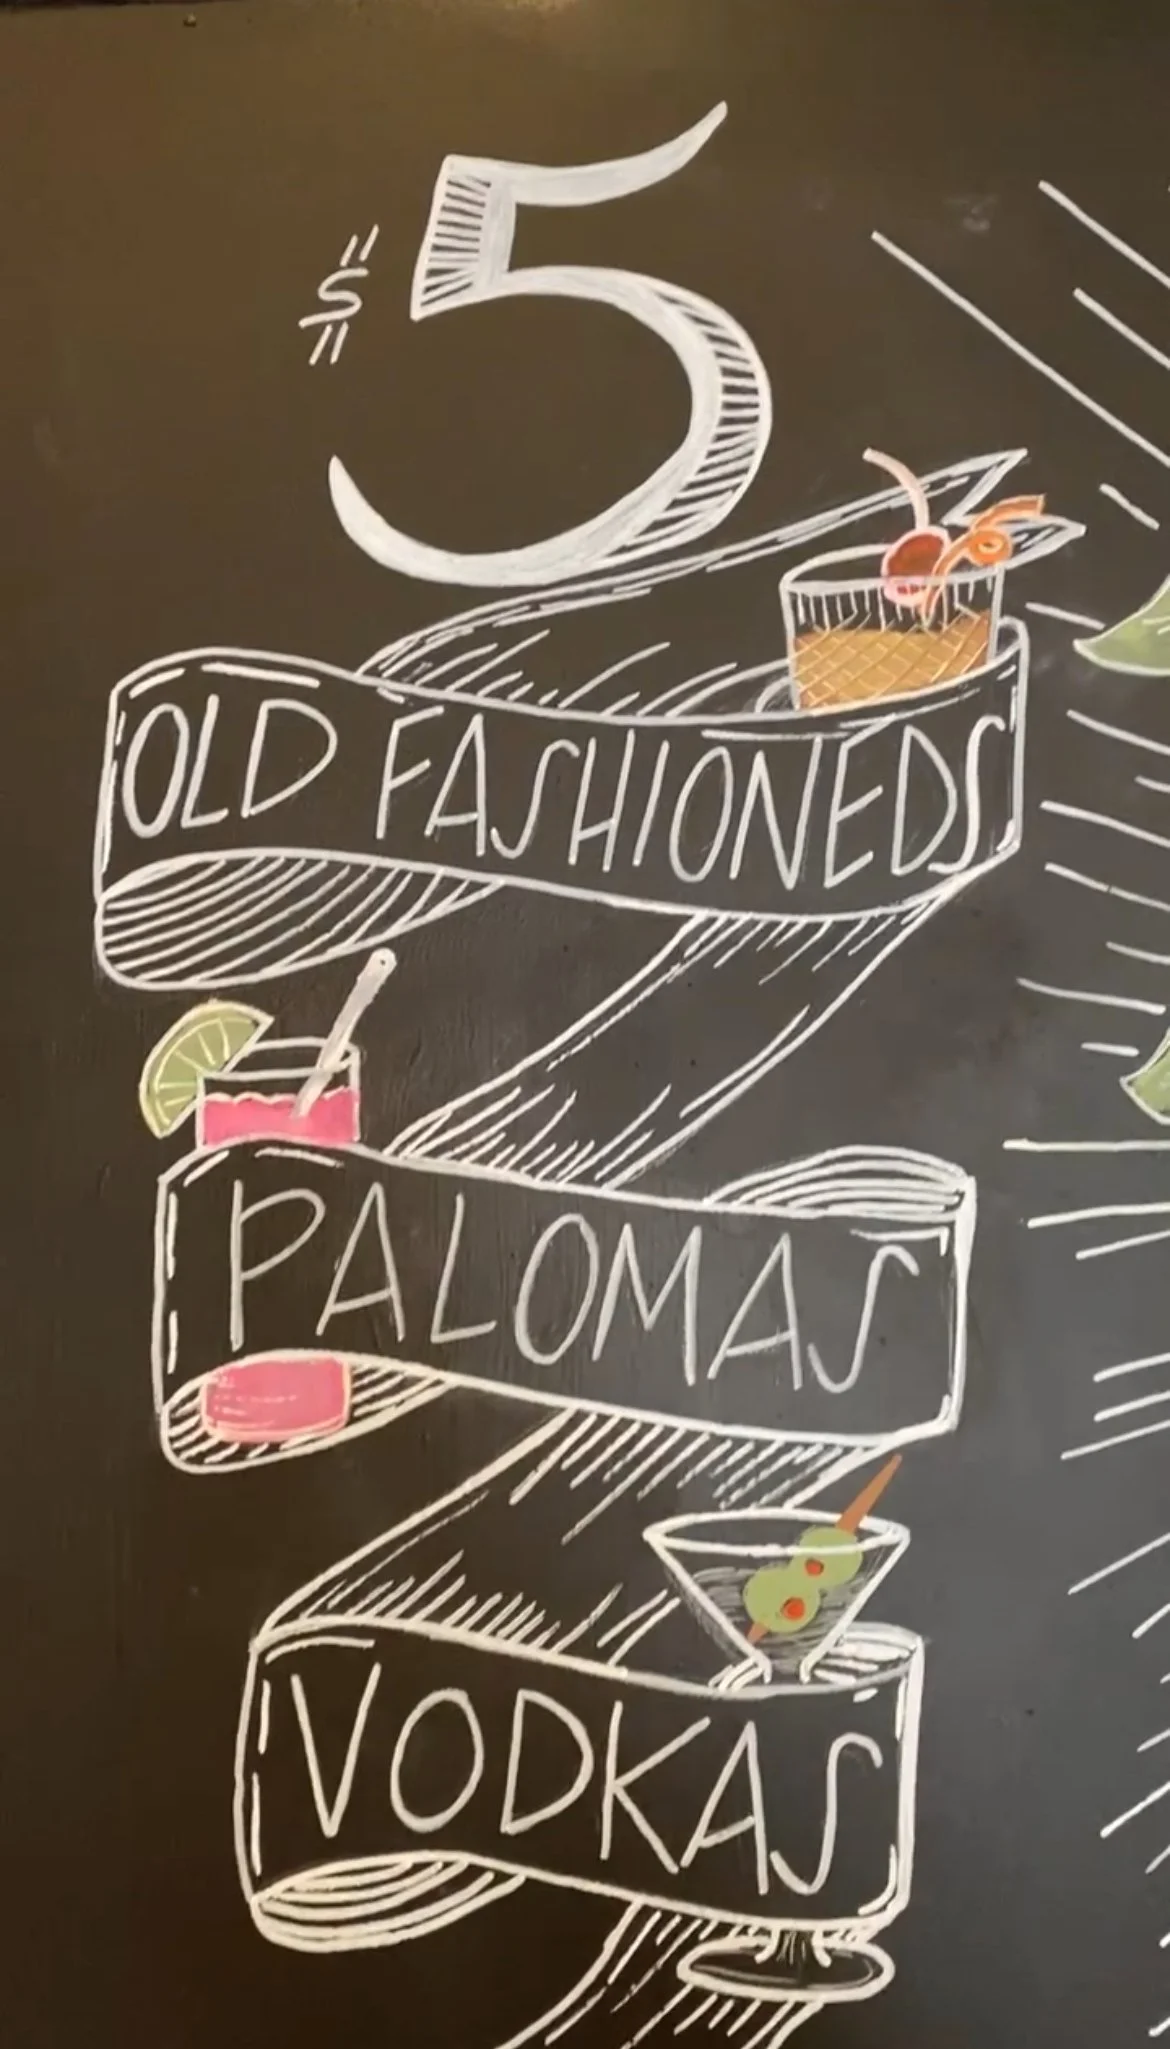 $5
OLD FASHIONEDS
PALOMAS
VODKAS